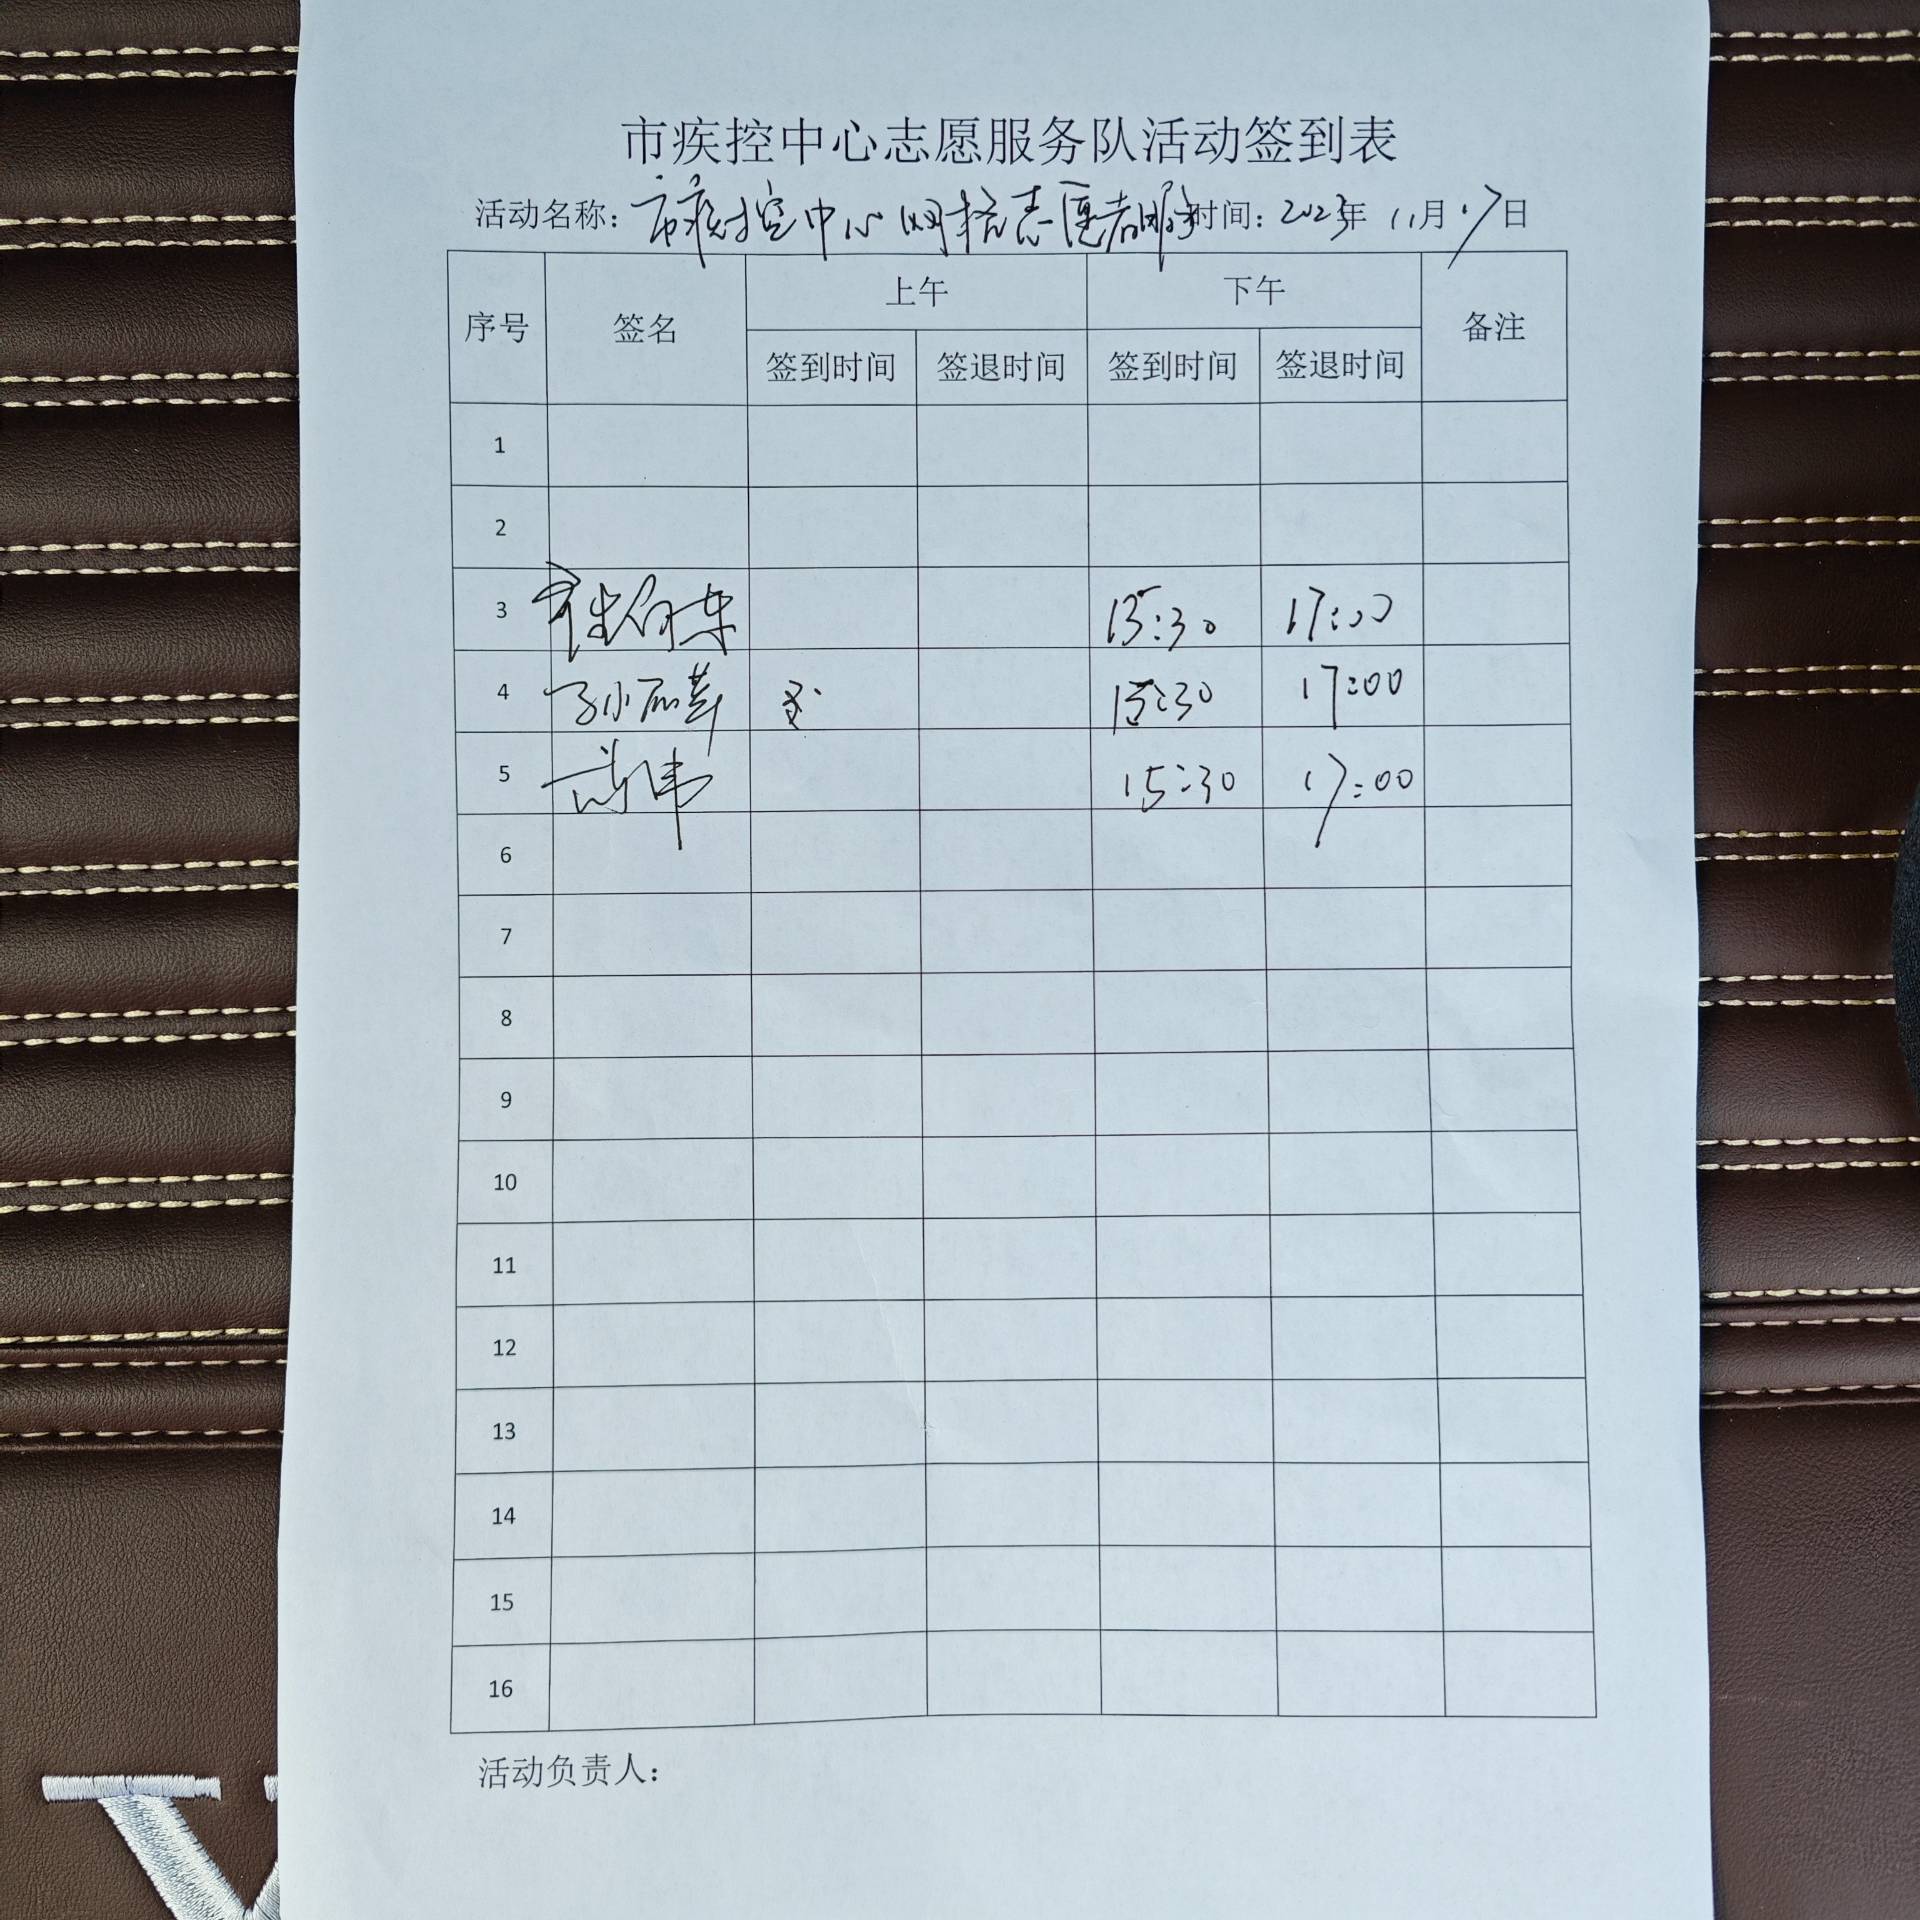 市疾控中心志愿服务队活动签到表
活动名称：市疾控中心网格志愿者服务 时间：2023年 11月17日
序号 签名 上午 下午 备注
签到时间 签退时间 签到时间 签退时间
1
2
3 15:30 17:00
4 孙 15:30 17:00
5 15:30 17:00
6
7
8
9
10
11
12
13
14
15
16
活动负责人：